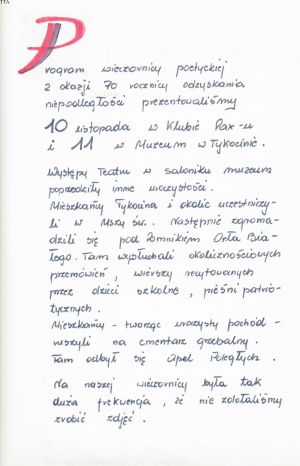 Program wieczornicy poetyckiej
z okazji 70 rocznicy odzyskania
niepodległości prezentowaliśmy
10 listopada w Klubie Pax-u
i 11 w Muzeum w Tykocinie.
Występy Teatru w saloniku muzeum
poprzedziły inne uroczystości.
Mieszkańcy Tykocina i okolic uczestniczy-
li w Mszy św.. Następnie zgroma-
dzili się pod Pomnikiem Orła Bia-
łego. Tam wysłuchali okolicznościowych
przemówień, wierszy recytowanych
przez dzieci szkolne, pieśni patrio-
tycznych.
Mieszkańcy - tworząc uroczysty pochód -
ruszyli na cmentarz grzebalny.
Tam odbył się Apel Poległych.
Na naszej wieczornicy była tak
duża frekwencja, że nie zdołaliśmy
zrobić zdjęć.